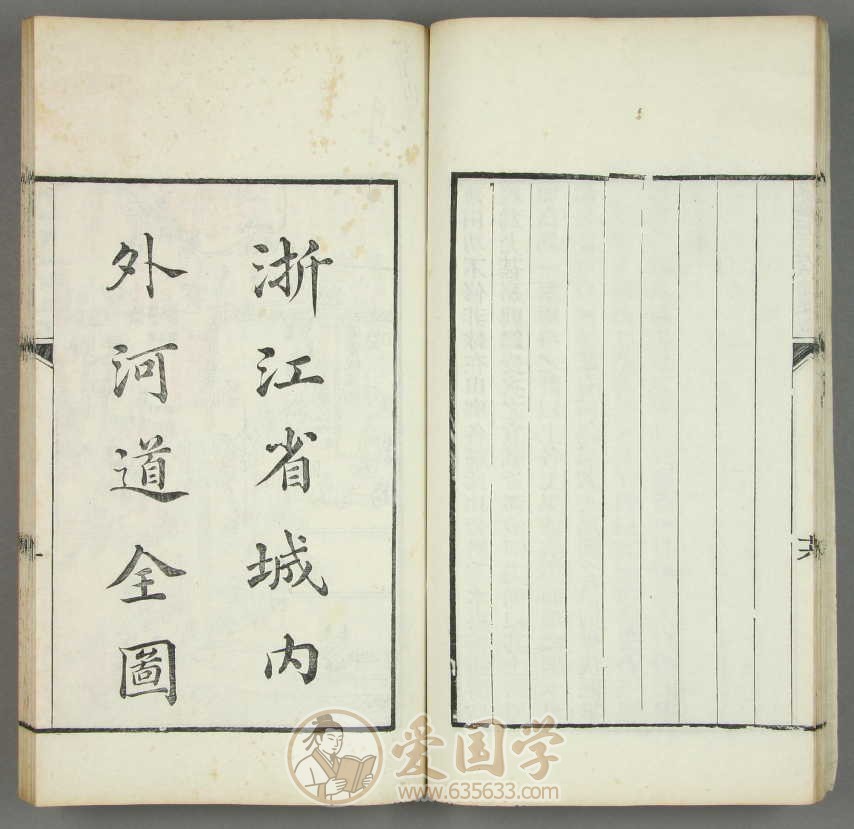 浙江省城内
外河道全圖
爱国学
www.635633.com